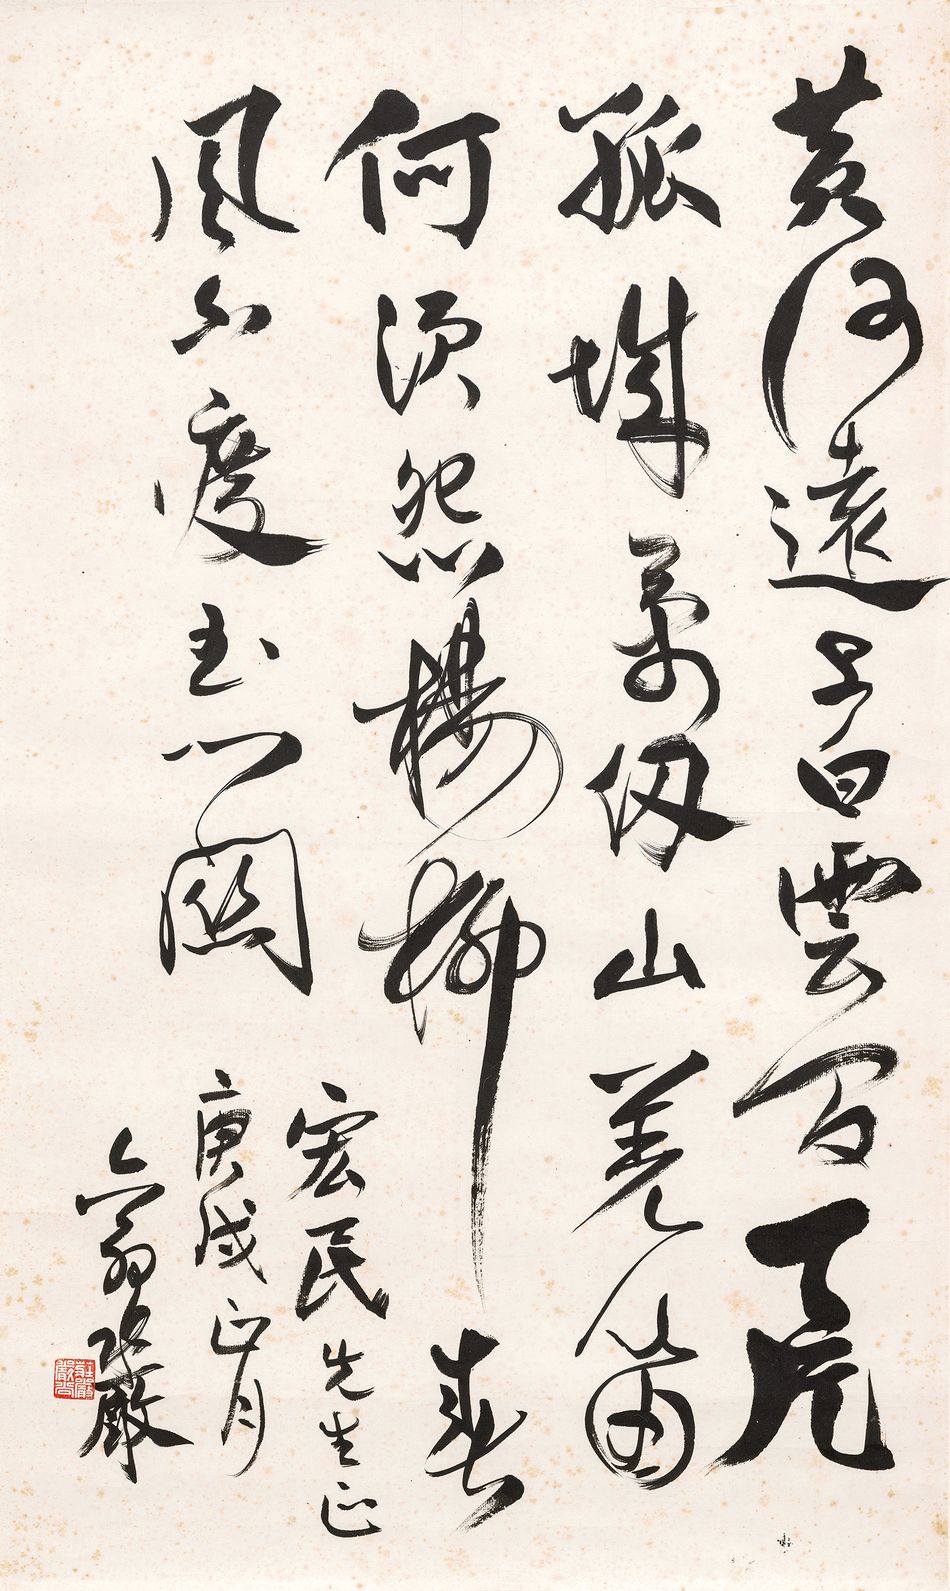 黄河遠上白雲間一片
孤城萬仞山羌笛
何須怨楊柳春
風不度玉門關
宏民先生正
庚戌正月
六一翁莊嚴